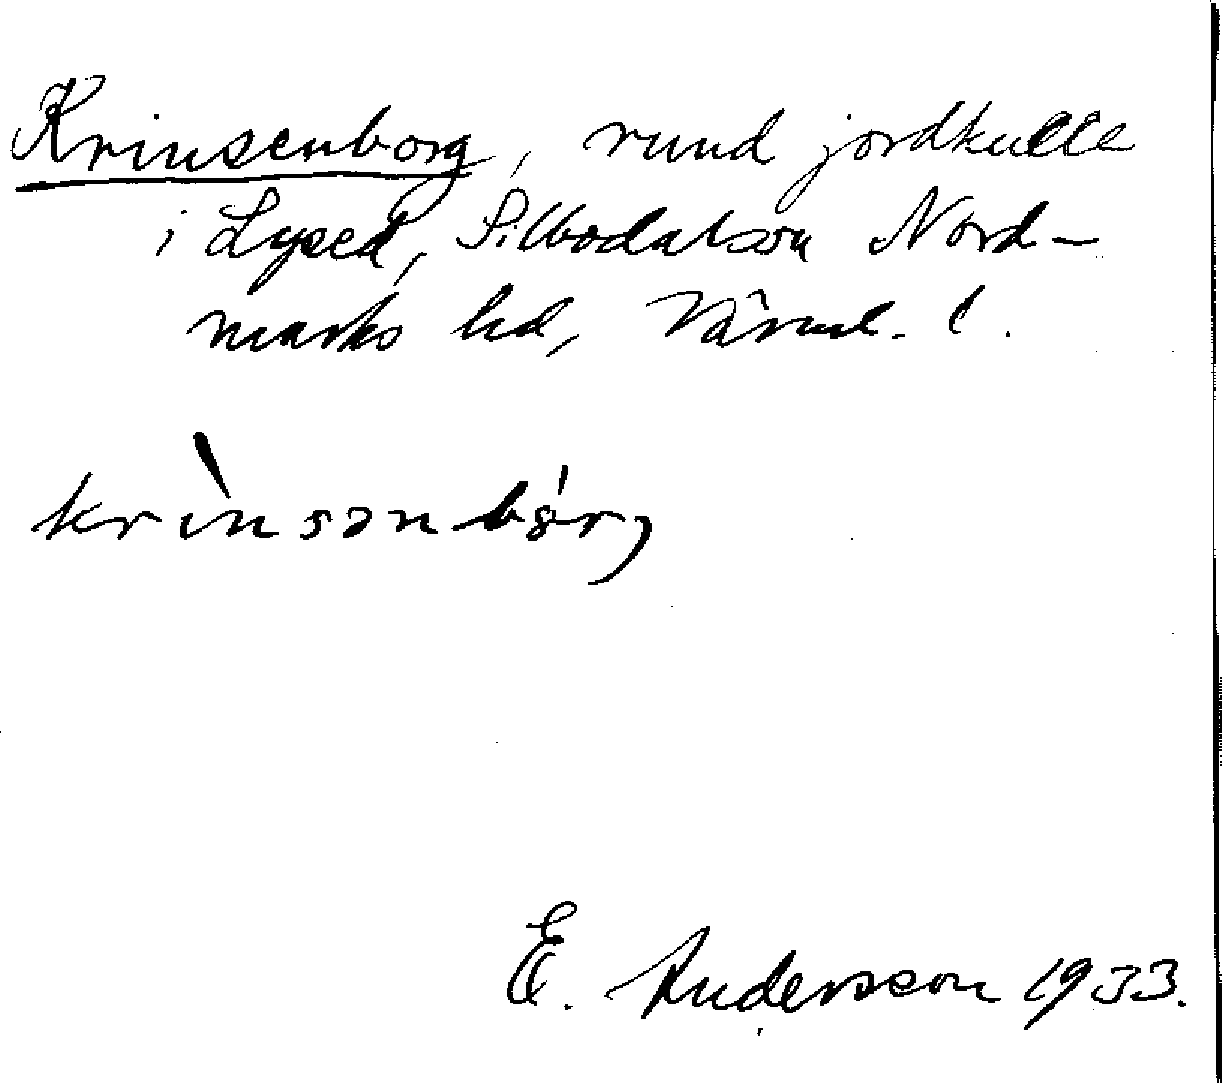 Krinsenborg, rund jordkulle
i Lysed, Silbodalson Nord-
marks hd, Värml. l.
krìnsənbó̵rj
E. Andersson 1933.